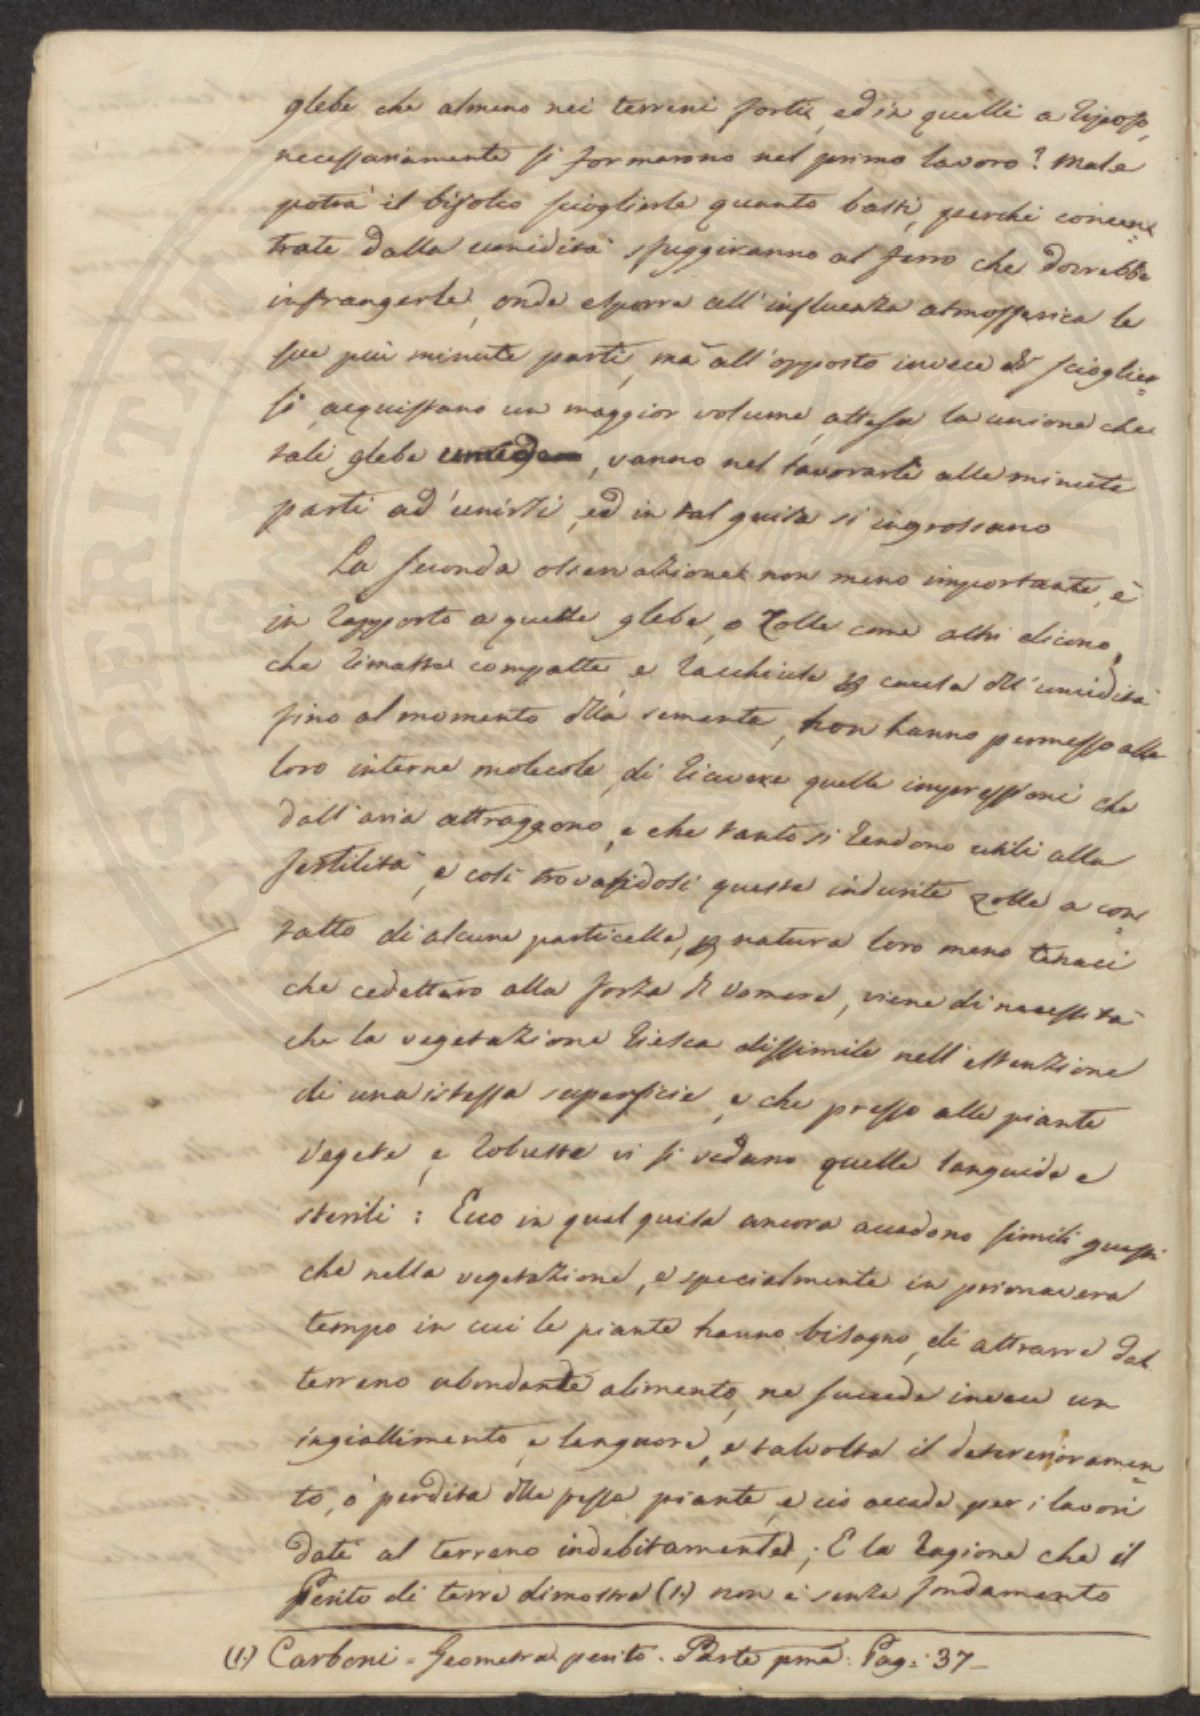 glebe che almeno nei terreni forti, ed in quelli a riposo,
necessariamente si formarono nel primo lavoro? Male
potrà il bifolco sciogliarle quanto basti, perchè concen=
trate dalla umidità sfuggiranno al ferro che dovrebbe
infrangerle, onde esporre all'influenza atmosferica le
sue più minute parti, mà all'opposto invece di scioglier=
si acquistano un maggior volume, attesa la unione che
tali glebe, vanno nel lavorarli alle minute
parti ad' unirsi, ed in tal guisa si ingrossano
La seconda osservazione non meno importante, è
in rapporto a quelle glebe, o Zolle come altri dicono,
che rimaste compatte e racchiuse p causa dll' umidità
fino al momento dlla semente, non hanno permesso alle
loro interne molecole, di ricevere quelle impressioni che
dall'aria attraggono, e che tanto si rendono utili alla
fertilità, e così trovandosi queste indurite zolle a con=
tatto di alcune particelle, p natura loro meno tenaci
che cedettero alla forza dl vomere, viene di necessità
che la vegetazione riesca dissimile nell'estenzione
di una istessa superficie, e che presso alle piante
vegete, e robuste vi si vedano quelle languide e
sterili: Ecco in qual guisa ancora accadono simili guasti
che nella vegetazione, e specialmente in primavera
tempo in cui le piante hanno bisogno, di attrarre dal
terreno abondante alimento, ne succede invece un
ingiallimento, e languore, e talvolta il deterioramen=
to, o' perdita dlle stesse piante, e ciò accade per i lavori
dati al terreno indebitamente; E la ragione che il
Perito di terre dimostra (1.) non è senza fondamento
(1.) Carboni - Geometra perito. Parte pma: Pag: 37 -